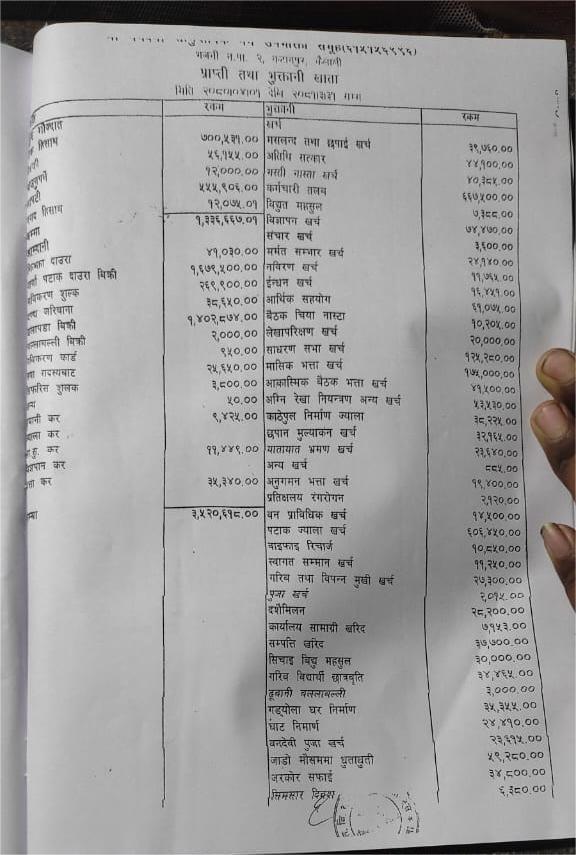 भजनी न.पा. २, गजरापुर, कैलाली
प्राप्ती तथा भुक्तानी खाता
मिति २०८०।०४।०१ देखि २०८१।३।३१ सम्म
रकम भुक्तानी रकम
खर्च
७००,५३१.०० मसलन्द तथा छपाई खर्च ३९,७६०.००
५६,१५५.०० अतिथि सत्कार ४४,१००.००
१२,०००.०० गस्ती नास्ता खर्च ४०,३८५.००
५५५,९०६.०० कर्मचारी तलब ६६७,५००.००
१२,०७५.०१ विद्युत महसुल ७,३८८.००
१,३३६,६६७.०१ विज्ञापन खर्च ७४,४७०.००
संचार खर्च ३,६००.००
दाउरा ४१,०३०.०० मर्मत सम्भार खर्च २४,१४०.००
पटाक दाउरा बिक्री १,६७९,५००.०० नविरण खर्च ११,७६५.००
शुल्क २६९,९००.०० ईन्धन खर्च १६,४५१.००
जरिवाना ३८,६५०.०० आर्थिक सहयोग ६१,०७५.००
बिक्री १,४०२,८७४.०० बैठक चिया नास्टा १०,२०५.००
बिक्री २,०००.०० लेखापरिक्षण खर्च २०,०००.००
कार्ड ९५०.०० साधरण सभा खर्च १२५,२८०.००
सदस्यबाट २५,६५०.०० मासिक भत्ता खर्च १७५,०००.००
शुलक ३,८००.०० आकास्मिक बैठक भत्ता खर्च ४१,५००.००
५०.०० अग्नि रेखा नियन्त्रण अन्य खर्च ५३,५३०.००
कर ९,४२५.०० काठेपुल निर्माण ज्याला ३८,२२५.००
कर छपान मुल्याकन खर्च ३२,१६५.००
कर ११,४४९.०० यातायात भ्रमण खर्च २३,६४०.००
कर अन्य खर्च ८८५.००
कर ३५,३४०.०० अनुगमन भत्ता खर्च १९,४००.००
प्रतिक्षलय रंगरोगन २,१२०.००
३,५२०,६१८.०० वन प्राविधिक खर्च १४,५००.००
पटाक ज्याला खर्च ६०६,४५०.००
वाइफाइ रिचार्ज १०,८५०.००
स्वागत सम्मान खर्च ११,२५०.००
गरिव तथा विपन्न मुखी खर्च २७,३००.००
पुजा खर्च २,०१५.००
दशैमिलन २८,२००.००
कार्यालय सामाग्री खरिद ७१५३.००
सम्पत्ति खरिद ३७,७००.००
सिचाइ बिद्यु महसुल ३०,०००.००
गरिव विद्यार्थी छात्रबृति ३४,४६५.००
ढूवानी बललाबल्ली ३,०००.००
गड्योला घर निर्माण ३५,३५५.००
घाट निमार्ण २४,४१०.००
वनदेवी पुजा खर्च २३,६१५.००
जाडो मौसममा धुताधुती ५९,२८०.००
जरकोर सफाई ३४,८००.००
सिमसार दिवस ६,३८०.००